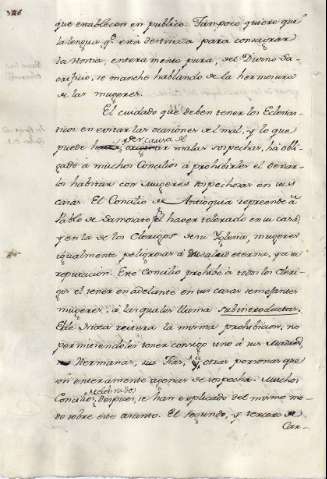 que establecen en publico. Tampoco quiero que
la lengua q.e está destinada para consagrar
la Hostia, enteramente pura, del Divino Sa-
crificio, se manche hablando de la hermosura
de las mugeres.
El cuidado que deben tener los Eclesias-
ticos en evitar las ocasiones de el mal, y lo que
puede ser causa de malas sospechas, ha obli-
gado à muchos Concilios à prohibirles el
habitar con mugeres sospechosas en sus
casas. El Concilio de Antioquia reprende à
Pablo de Samosata el haver tolerado en su casa,
y en la de los Clerigos de su Iglesia, mugeres
igualmente peligrosas à su salud eterna, y à su
reputacion. Este Concilio prohibe à todos los Cleri-
gos el tener en adelante en sus casas semejantes
mugeres, à las quales llama subintroductas.
El de Nicea reitera la misma prohibicion, no
permitiendoles tener consigo sino à sus Madres,
Hermanas, sus Tias, y otras personas que
esten enteramente agenas de sospecha. Muchos
Concilios, despues, se han explicado del mismo mo-
do sobre este asunto. El segundo, y tercero de
Car-